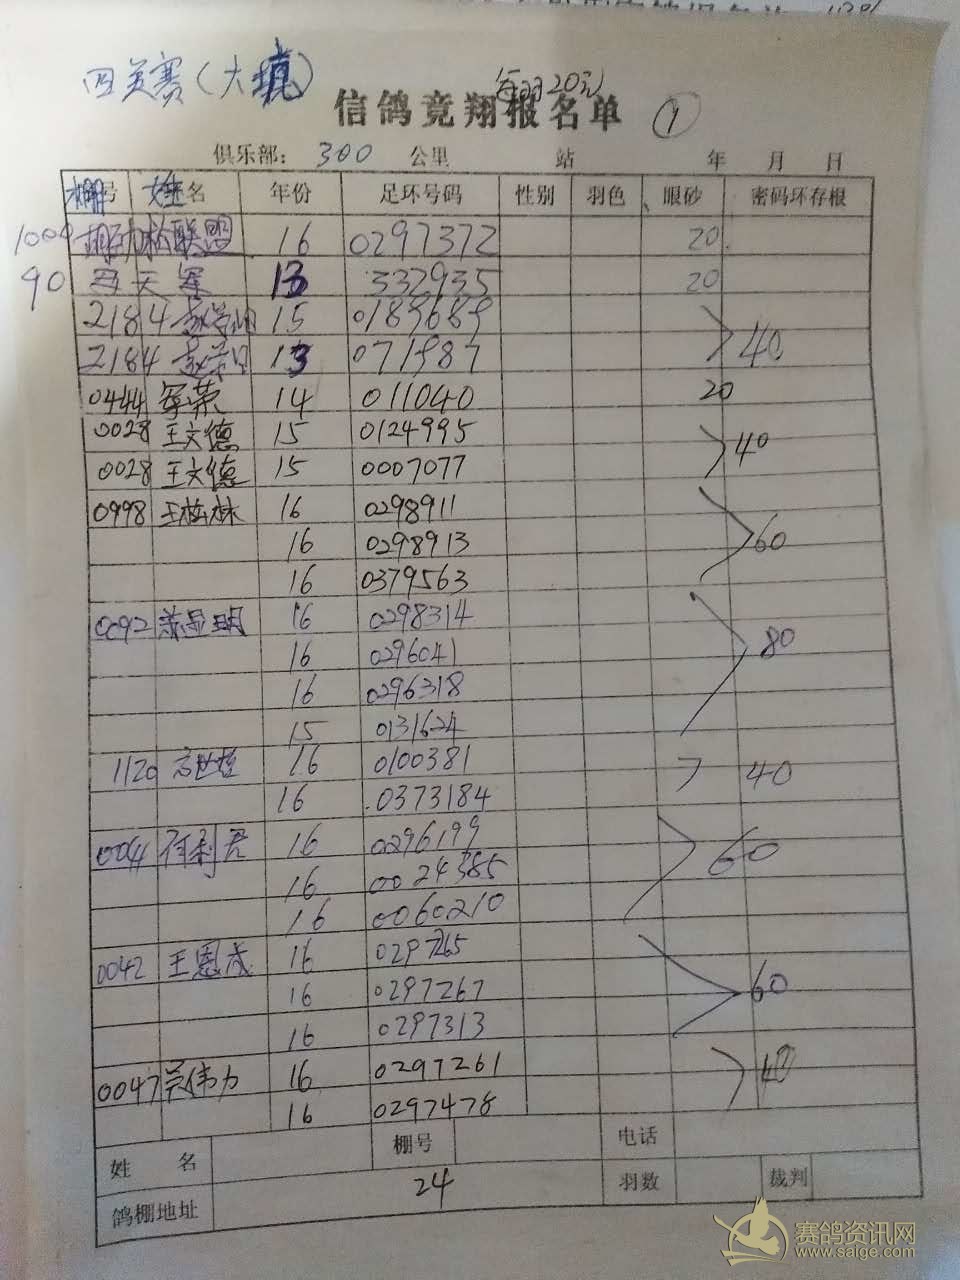 四关赛(大填)
每羽20元
信鸽竞翔报名单 ①
俱乐部: 300 公里 站 年 月 日
棚号 姓名 年份 足环号码 性别 羽色 眼砂 密码环存根
联盟 16 0297372 20
90 天军 13 332935 20
2184 15 0189689
2184 13 071987 40
0444 军荣 14 011040 20
0028 王文德 15 0124995
0028 王文德 15 0007077 40
0998 王栋林 16 0298911
16 0298913 60
16 0379563
0092 16 0298314
16 0296041 80
16 0296318
15 0131624
1120 16 0100381 40
16 0373184
0044 16 0296199 60
16 0024385
16 0060210
0042 王恩成 16 0297265
16 0297267 60
16 0297313
0047 吴伟力 16 0297261 40
16 0297478
姓名 棚号 电话
鸽棚地址 24 羽数 裁判
赛鸽资讯网
www.saige.com